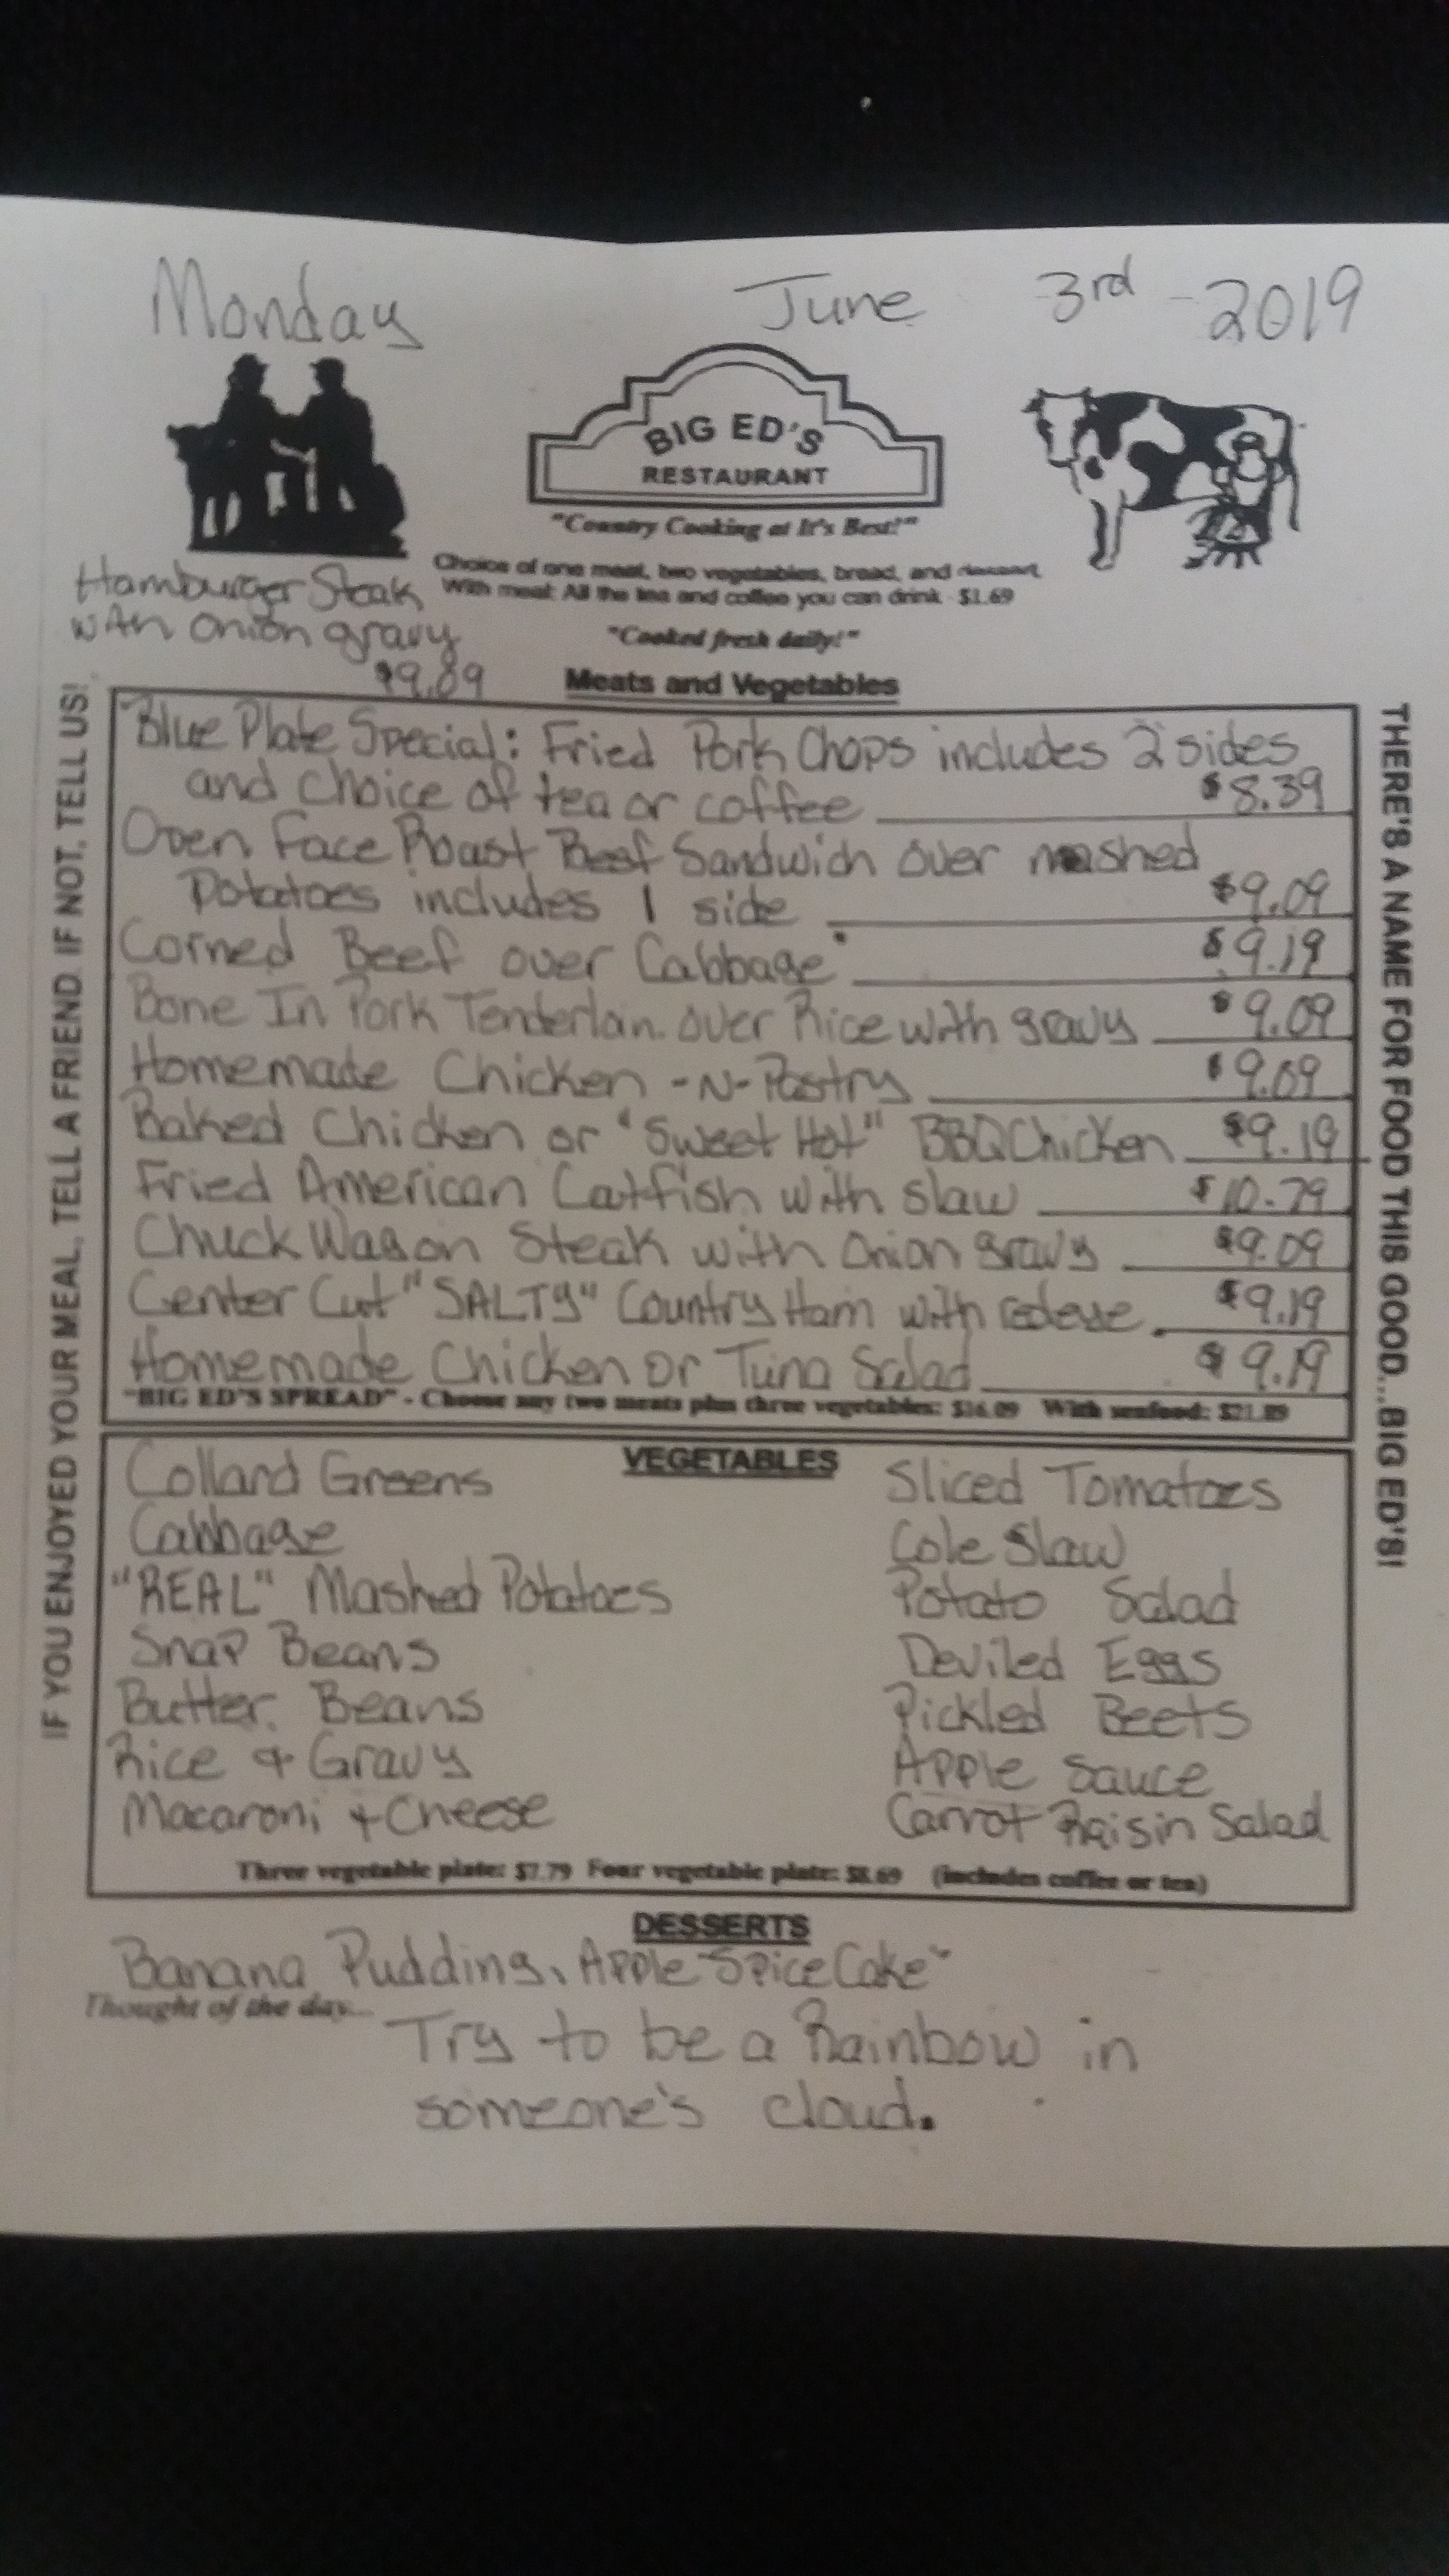 Monday June 3rd 2019
BIG ED'S
RESTAURANT
"Country Cooking at It's Best!"
Choice of one meat, two vegetables, bread, and dessert
With meal: All the tea and coffee you can drink $1.69
"Cooked fresh daily!"
Hamburger Steak
with onion gravy
$9.89
Meats and Vegetables
IF YOU ENJOYED YOUR MEAL, TELL A FRIEND. IF NOT, TELL US!
Blue Plate Special: Fried Pork Chops includes 2 sides
and choice of tea or coffee $8.39
Oven Face Roast Beef Sandwich over mashed
Potatoes includes 1 side $9.09
Corned Beef over Cabbage $9.19
Bone In Pork Tenderloin over Rice with gravy $9.09
Homemade Chicken -N- Pastry $9.09
Baked Chicken or "Sweet Hot" BBQ Chicken $9.19
Fried American Catfish with slaw $10.79
Chuck Wagon Steak with Onion gravy $9.09
Center Cut "SALTY" Country Ham with redeye $9.19
Homemade Chicken or Tuna Salad $9.19
"BIG ED'S SPREAD" - Choose any two meats plus three vegetables: $16.09 With seafood: $21.89
THERE'S A NAME FOR FOOD THIS GOOD...BIG ED'S!
VEGETABLES
Collard Greens
Cabbage
"REAL" Mashed Potatoes
Snap Beans
Butter Beans
Rice & Gravy
Macaroni & Cheese
Sliced Tomatoes
Cole Slaw
Potato Salad
Deviled Eggs
Pickled Beets
Apple Sauce
Carrot Raisin Salad
Three vegetable plate: $7.79 Four vegetable plate: $8.69 (includes coffee or tea)
DESSERTS
Banana Pudding, Apple "Spice Cake"
Thought of the day...
Try to be a Rainbow in
someone's cloud.